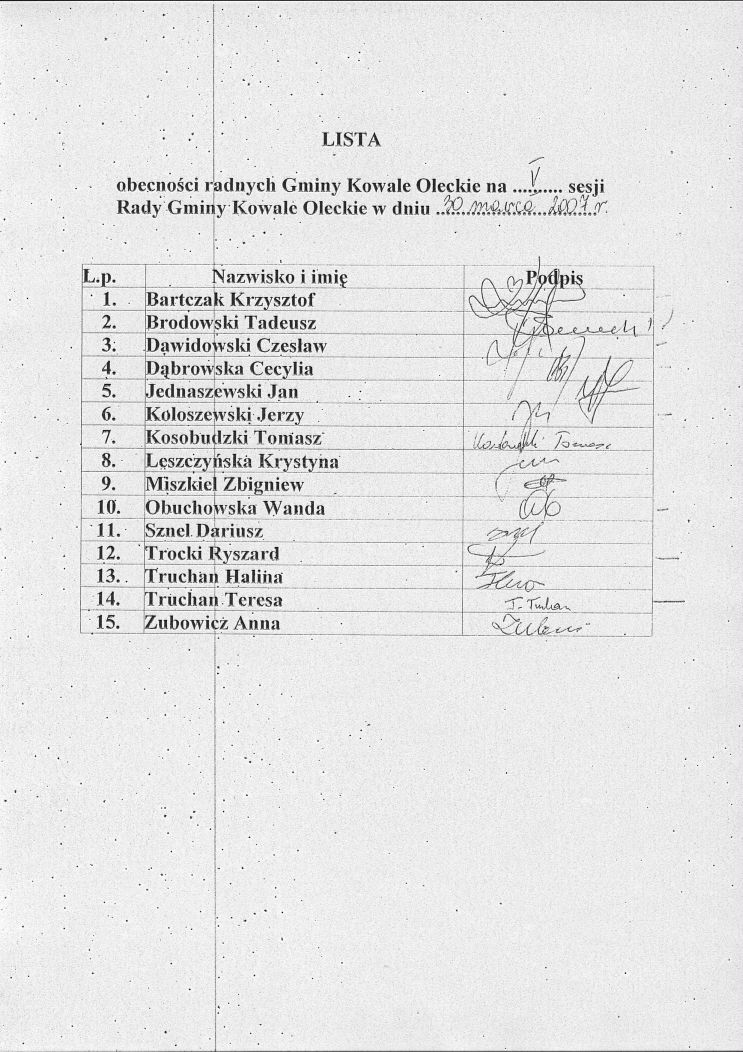 LISTA
obecności radnych Gminy Kowale Oleckie na ...V... sesji
Rady Gminy Kowale Oleckie w dniu 30 marca 2007 r.
L.p. Nazwisko i imię Podpis
1. Bartczak Krzysztof
2. Brodowski Tadeusz
3. Dawidowski Czesław
4. Dąbrowska Cecylia
5. Jednaszewski Jan
6. Kołoszewski Jerzy
7. Kosobudzki Tomasz Kosobudzki Tomasz
8. Leszczyńska Krystyna
9. Miszkiel Zbigniew
10. Obuchowska Wanda
11. Sznel Dariusz
12. Trocki Ryszard
13. Truchan Halina
14. Truchan Teresa T. Truchan
15. Zubowicz Anna